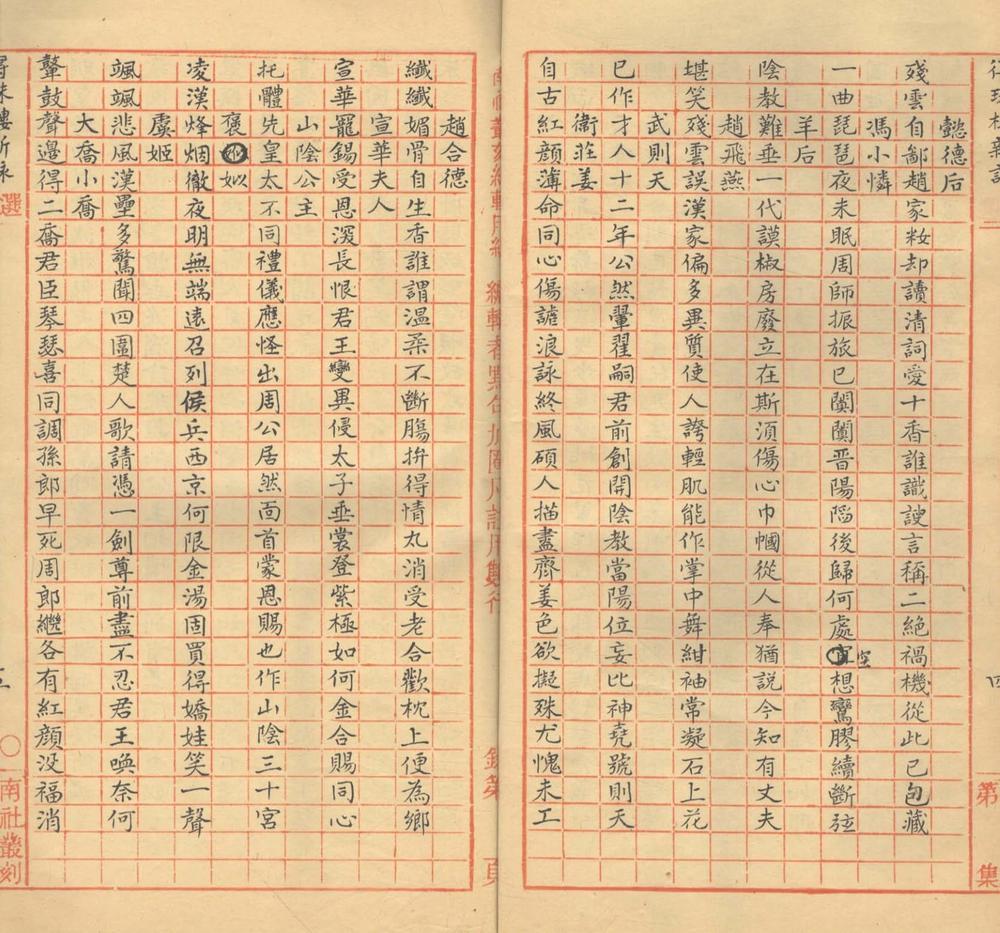 第
集
懿德后
殘雲自鄙趙家妝却讀清詞愛十香誰識諛言稱二絕禍機從此已包藏
馮小憐
一曲琵琶夜未眠周師振旅已闐闐晋陽陷後歸何處空想鸞膠續斷弦
羊后
陰教難垂一代謨椒房廢立在斯須傷心巾幗從人奉猶説今知有丈夫
趙飛燕
堪笑殘雲誤漢家偏多異質使人誇輕肌能作掌中舞紺袖常凝石上花
武則天
已作才人十二年公然翬翟嗣君前創開陰教當陽位妄比神堯號則天
衛莊姜
自古紅顔薄命同心傷謔浪詠終風碩人描盡齊姜色欲擬殊尤愧未工
趙合德
纖纖媚骨自生香誰謂温柔不斷腸拚得情丸消受老合歡枕上便為鄉
宣華夫人
宣華寵錫受恩深長恨君王變異侵太子垂裳登紫極如何金合賜同心
山陰公主
托體先皇太不同禮儀應怪出周公居然面首蒙恩賜也作山陰三十宮
褒姒
凌漢烽烟徹夜明無端遠召列侯兵西京何限金湯固買得嬌娃笑一聲
虞姬
颯颯悲風漢壘多驚聞四圍楚人歌請憑一劍尊前盡不忍君王喚奈何
大喬小喬
鼙鼓聲邊得二喬君臣琴瑟喜同調孫郎早死周郎繼各有紅顔没福消
選
南社叢刻